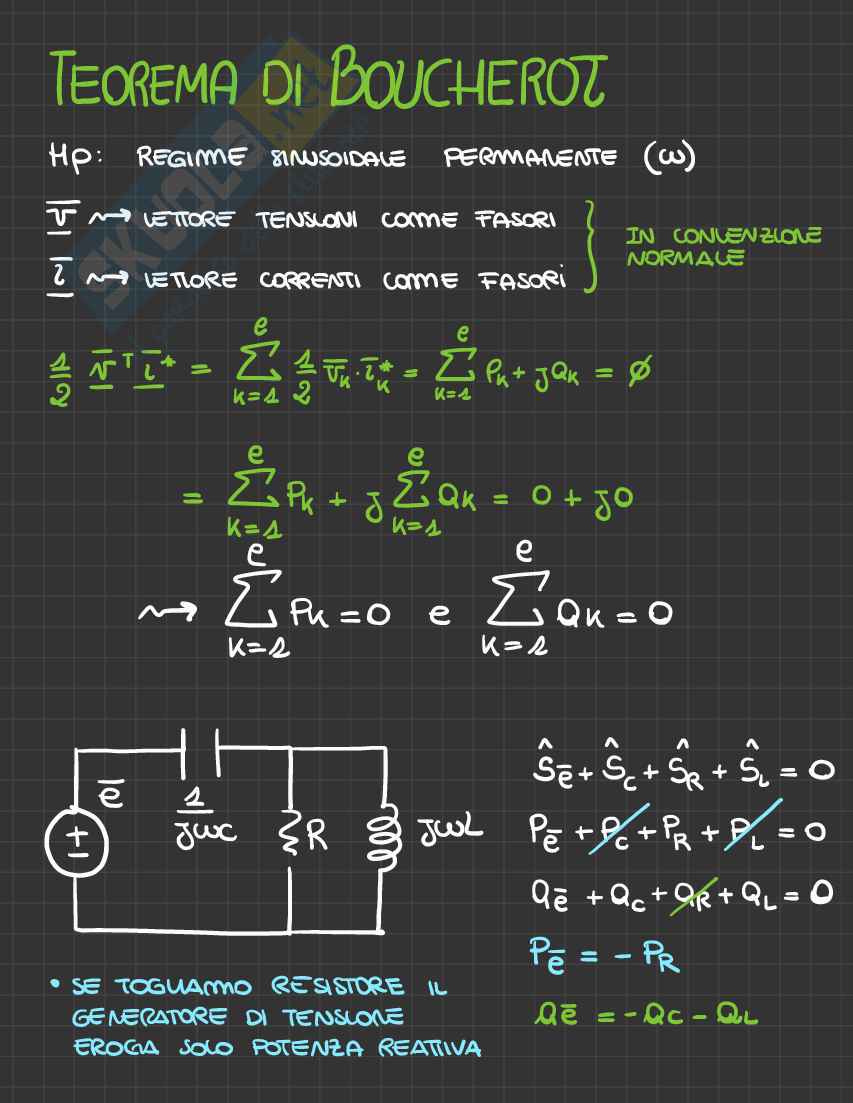 TEOREMA DI BOUCHEROT
Hp: REGIME SINUSOIDALE PERMANENTE (ω)
v̅ ⇝ VETTORE TENSIONI COME FASORI
i̅ ⇝ VETTORE CORRENTI COME FASORI
IN CONVENZIONE
NORMALE
1/2 v̅ᵀ i̅* = ∑_{k=1}^{e} 1/2 v̅ₖ · i̅ₖ* = ∑_{k=1}^{e} Pₖ + jQₖ = ∅
= ∑_{k=1}^{e} Pₖ + j ∑_{k=1}^{e} Qₖ = 0 + j0
⇝ ∑_{k=1}^{e} Pₖ = 0 e ∑_{k=1}^{e} Qₖ = 0
e̅
1/jωC
R
jωL
Ŝ_e̅ + Ŝ_C + Ŝ_R + Ŝ_L = 0
P_e̅ + P_C + P_R + P_L = 0
Q_e̅ + Q_C + Q_R + Q_L = 0
P_e̅ = - P_R
Q_e̅ = - Q_C - Q_L
• SE TOGLIAMO RESISTORE IL
GENERATORE DI TENSIONE
EROGA SOLO POTENZA REATTIVA
SKUOLA.net